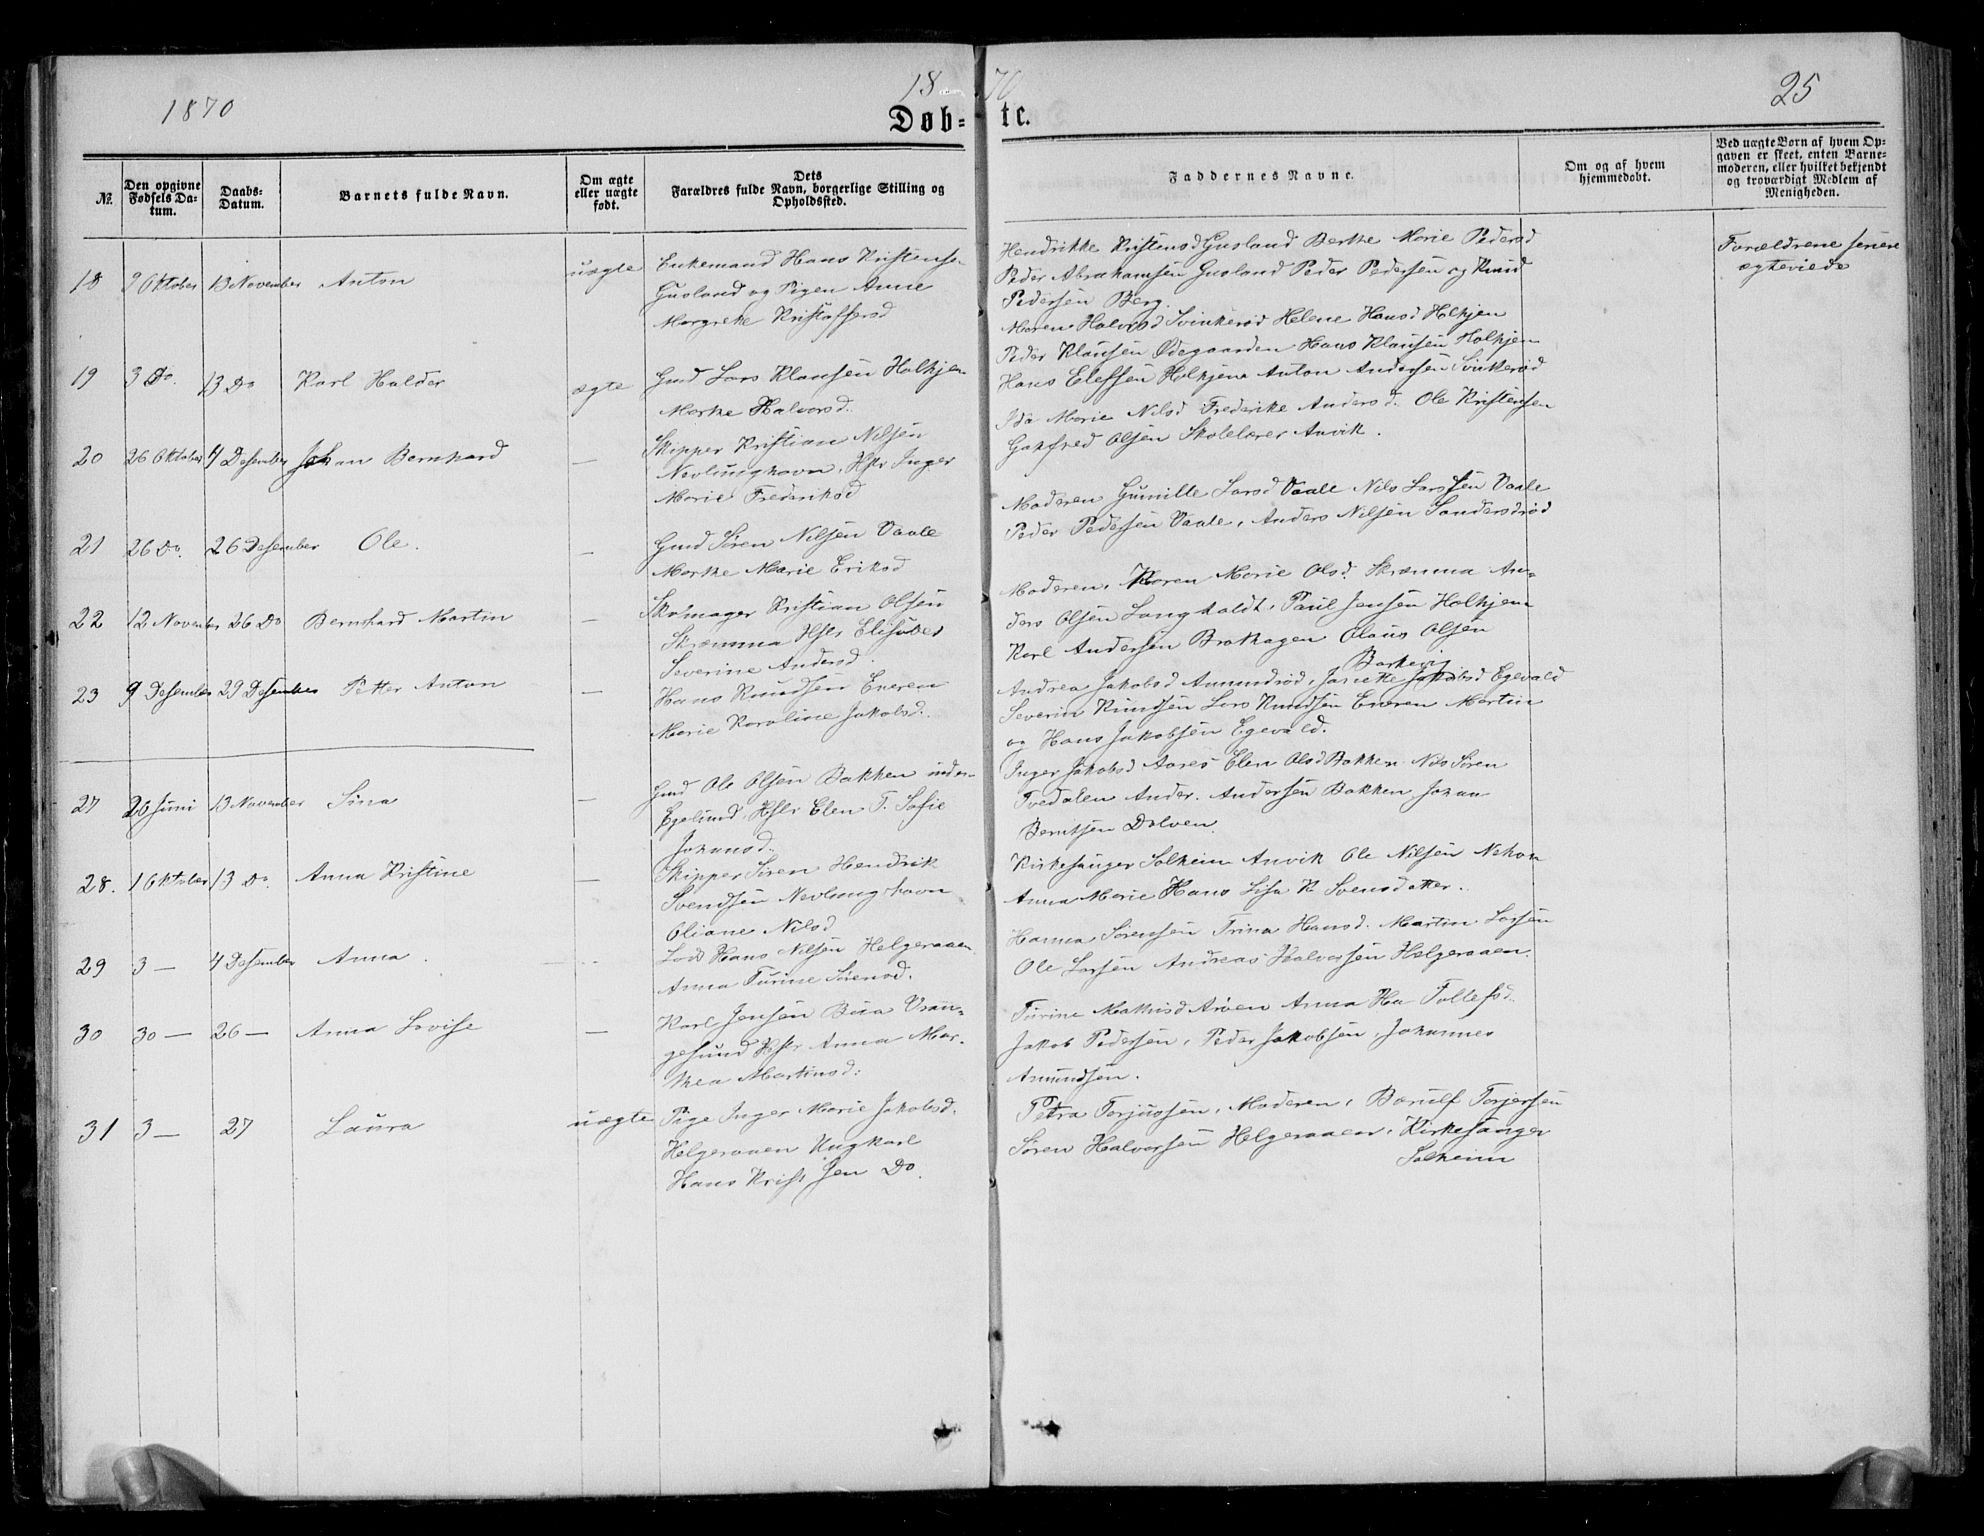 1870
18 70
25
Døb= te.
№.
Den opgivne Fødsels Da-tum.
Daabs-Datum.
Barnets fulde Navn.
Om ægte eller uægte født.
Dets Forældres fulde Navn, borgerlige Stilling og Opholdssted.
Faddernes Navne.
Om og af hvem hjemmedøbt.
Ved uægte Børn af hvem Op-gaven er skeet, enten Barne-moderen, eller hvilket bekjendt og troværdigt Medlem af Menigheden.
18 9 Oktober 13 November Anton uægte
Enkemand Hans Kristense.
Gusland og Pigen Anne
Margrethe Kristoffersd
Hendrikke Kristensd Gusland Berthe Marie Pedersd
Peder Abrahamsen Gusland Peder Pedersen og Knud
Pedersen Berg.
Forældrene senere
ægteviede
19 3 Do. 13 Do Karl Halder ægte
Gmd Lars Klausen Holkjen
Marthe Halvorsd.
Maren Halvorsd Svinkerød Helene Hansd Holkjen
Peder Klausen Ødegaarden Hans Klausen Holkjen
Hans Elefsen Holkjen Anton Andersen Svinkerød
20 26 Oktober 4 Desember Johan Bernhard —
Skipper Kristian Nilsen
Nevlunghavn, Hstr Inger
Marie Frederiksd
Ida Marie Nilsd Frederike Andersd. Ole Kristensen
Gotfred Olsen Skolelærer Anvik.
21 26 Do. 26 Desember Ole. —
Gmd Søren Nilsen Vaale
Marthe Marie Eriksd
Moderen Gunille Larsd Vaale Nils Larssen Vaale
Peder Pedersen Vaale, Anders Nilsen Sandersdrød
22 12 November 26 Do Bernhard Martin —
Skomager Kristian Olsen
Skræmma Hstr Elisabet
Severine Andersd.
Moderen, Karen Marie Olsd. Skræmma An-
ders Olsen Langholdt, Paul Jensen Holkjen
Karl Andersen Brathagen Olaus Olsen
Barkevig
23 9 Desember 29 Desember Petter Anton —
Hans Knudsen Eneren
Marie Karoline Jakobsd.
Andrea Jakobsd Amundrød, Janette Jakobsd Egevald
Severin Knudsen Lars Knudsen Eneren Martin
og Hans Jakobsen Egevald.
27 26 Juni 13 November Sina —
Gmd Ole Olsen Bakken under
Egelund, Hstr Elen T. Sofie
Johansd.
Inger Jakobsd Aares Elen Olsd Bakken Nils Søren
Tvedalen Ander. Andersen Bakken Johan
Berntsen Dolven
28. 1 Oktober 13 Do. Anna Kristine —
Skipper Søren Hendrik
Svendsen Nevlunghavn
Oliane Nilsd
Kirkesanger Solheim Anvik Ole Nilsen
Anna Marie Hans Lisa K Svensdatter.
29 3 — 4 Desember Anna.
Lods Hans Nilsen Helgeraaen
Anna Turine Sørensd.
Hanna Sørensen Trina Hansd. Martin Larsen
Ole Larsen Andreas Halvorsen Helgeraaen.
30 30 — 26 — Anna Lovise —
Karl Jensen Bua Vran-
gesund Hstr Anna Mar-
thea Martinsd:
Turine Mathisd Arøen Anna Ha Tollefsd.
Jakob Pedersen, Peder Jakobsen, Johannes
Amundsen.
31 3 — 27 Laura uægte
Pige Inger Marie Jakobsd.
Helgeraaen Ungkarl
Hans Krist sen Do.
Petra Torjussen, Moderen, Torjersen
Søren Halvorsen Helgeraaen, Kirkesanger
Solheim